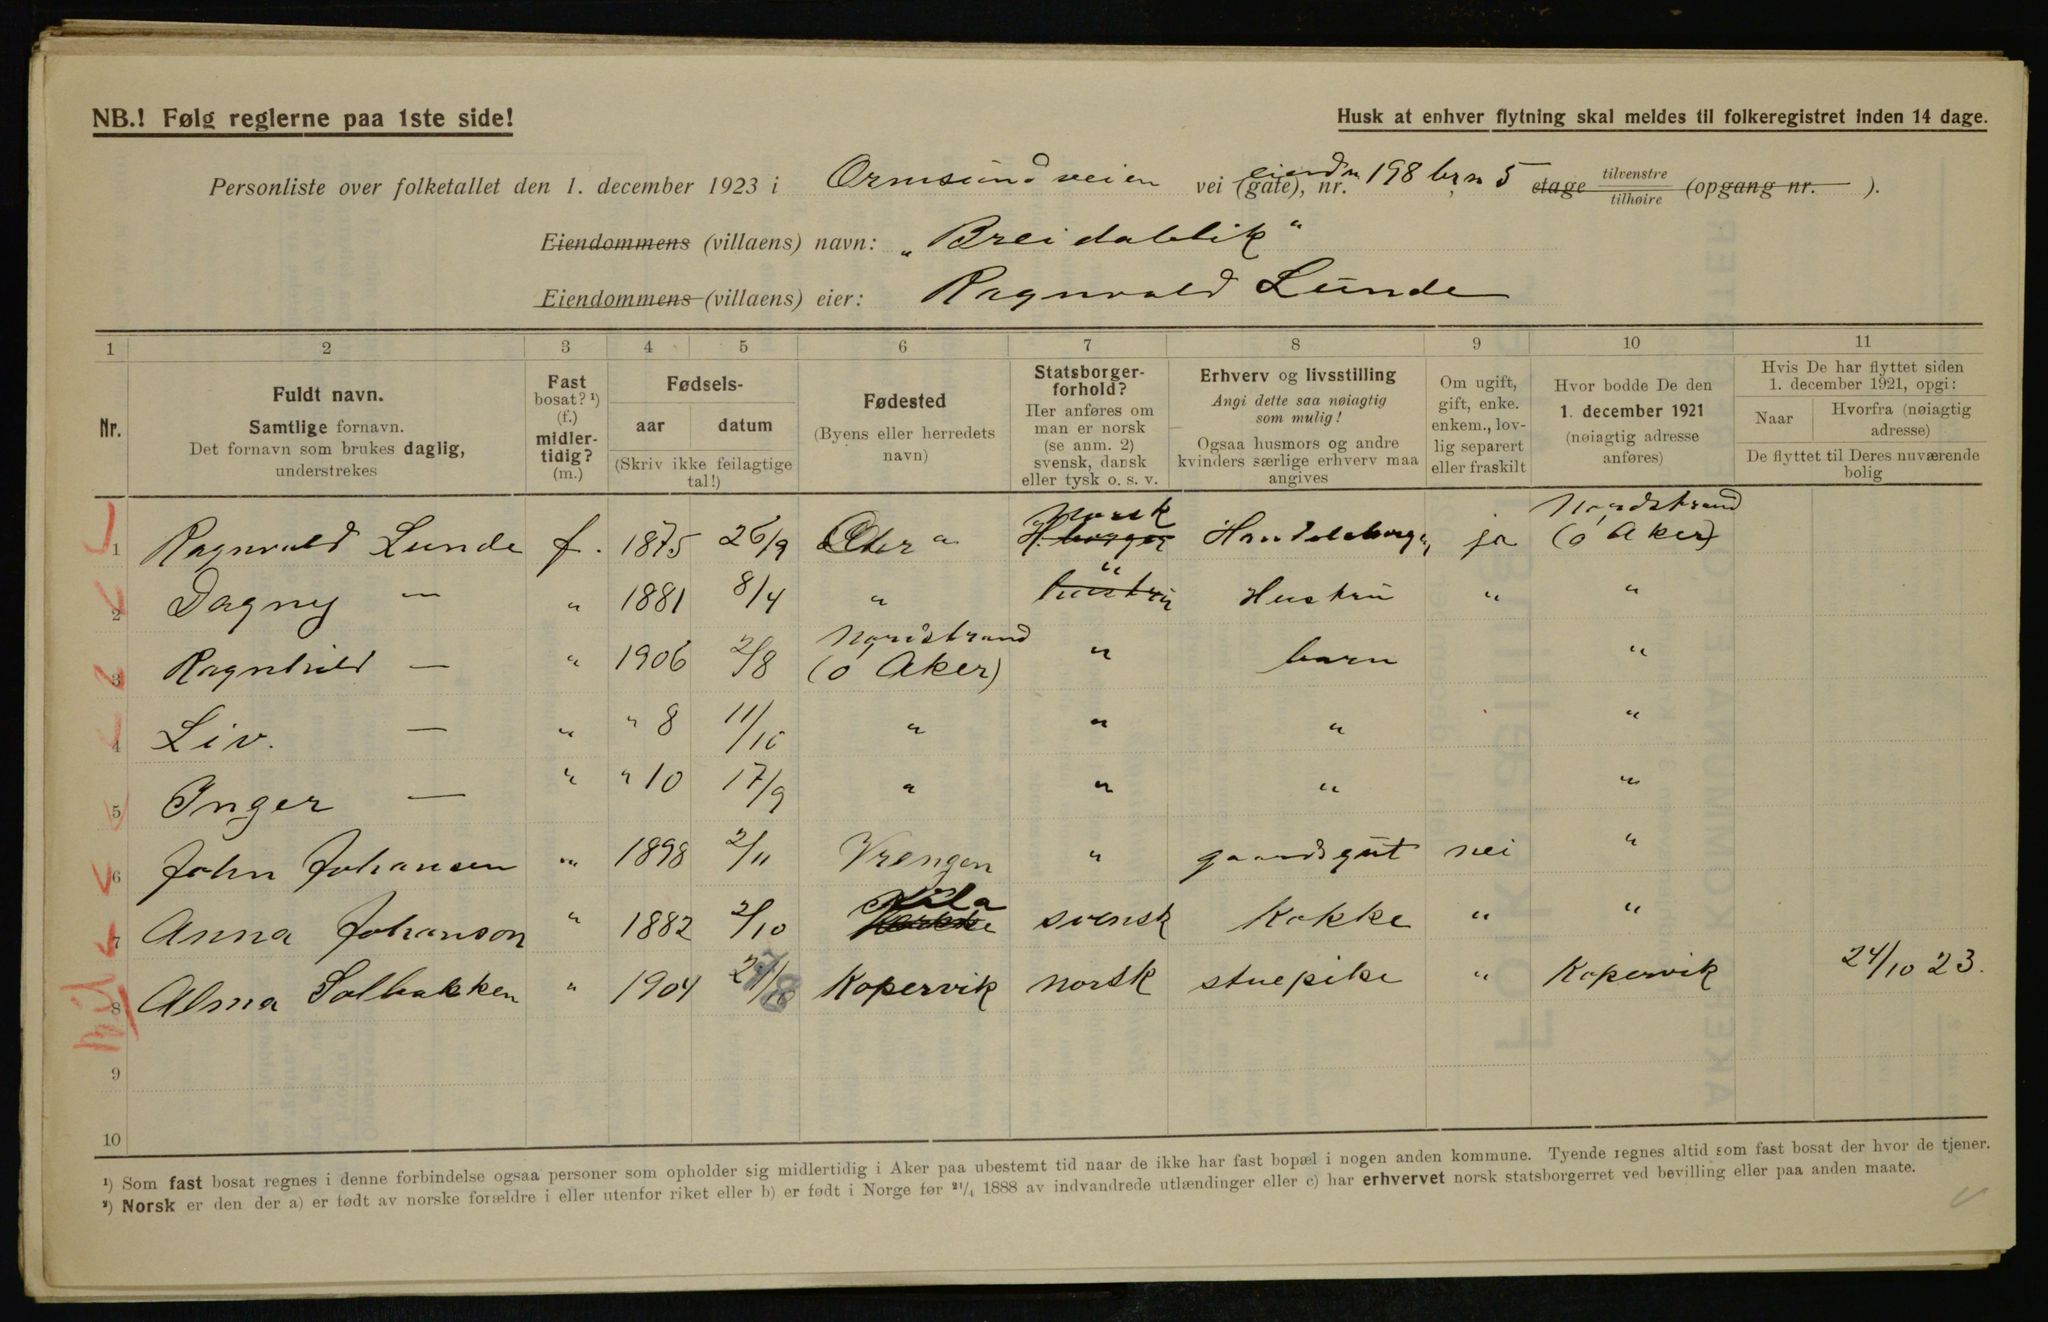 NB.! Følg reglerne paa 1ste side!
Husk at enhver flytning skal meldes til folkeregistret inden 14 dage.
Personliste over folketallet den 1. december 1923 i Ormsundveien vei (gate), nr. 198 br n 5 etage tilvenstre tilhøire (opgang nr. ).
Eiendommens (villaens) navn: „Breidablik"
Eiendommens (villaens) eier: Ragnvald Lunde
1 2 3 4 5 6 7 8 9 10 11
Nr.
Fuldt navn.
Samtlige fornavn.
Det fornavn som brukes daglig,
understrekes
Fast
bosat? ¹)
(f.)
midler-
tidig?
(m.)
Fødsels-
aar datum
(Skriv ikke feilagtige
tal!)
Fødested
(Byens eller herredets
navn)
Statsborger-
forhold?
Her anføres om
man er norsk
(se anm. 2)
svensk, dansk
eller tysk o. s. v.
Erhverv og livsstilling
Angi dette saa nøiagtig
som mulig!
Ogsaa husmors og andre
kvinders særlige erhverv maa
angives
Om ugift,
gift, enke.
enkem., lov-
lig separert
eller fraskilt
Hvor bodde De den
1. december 1921
(nøiagtig adresse
anføres)
Hvis De har flyttet siden
1. december 1921, opgi:
Naar
Hvorfra (nøiagtig
adresse)
De flyttet til Deres nuværende
bolig
1 Ragnvald Lunde f. 1875 26/9 norsk H. borger Handelsborger ja Nordstrand (ø Aker)
2 Dagny — " 1881 8/4 " " hustru Hustru " "
3 Ragnhild — " 1906 2/8 Nordstrand (ø Aker) " barn "
4 Liv. — " " 8 11/10 " " " "
5 Inger — " " 10 17/9 " " " "
6 John Johansen " 1898 2/11 Vrengen " gaardsgut nei "
7 Anna Johanson " 1882 2/10 svensk Kokke " "
8 Alma Solbakken " 1904 Kopervik norsk stuepike " Kopervik 24/10 23.
9
10
¹) Som fast bosat regnes i denne forbindelse ogsaa personer som opholder sig midlertidig i Aker paa ubestemt tid naar de ikke har fast bopæl i nogen anden kommune. Tyende regnes altid som fast bosat der hvor de tjener.
²) Norsk er den der a) er født av norske forældre i eller utenfor riket eller b) er født i Norge før ²¹/₄ 1888 av indvandrede utlændinger eller c) har erhvervet norsk statsborgerret ved bevilling eller paa anden maate.